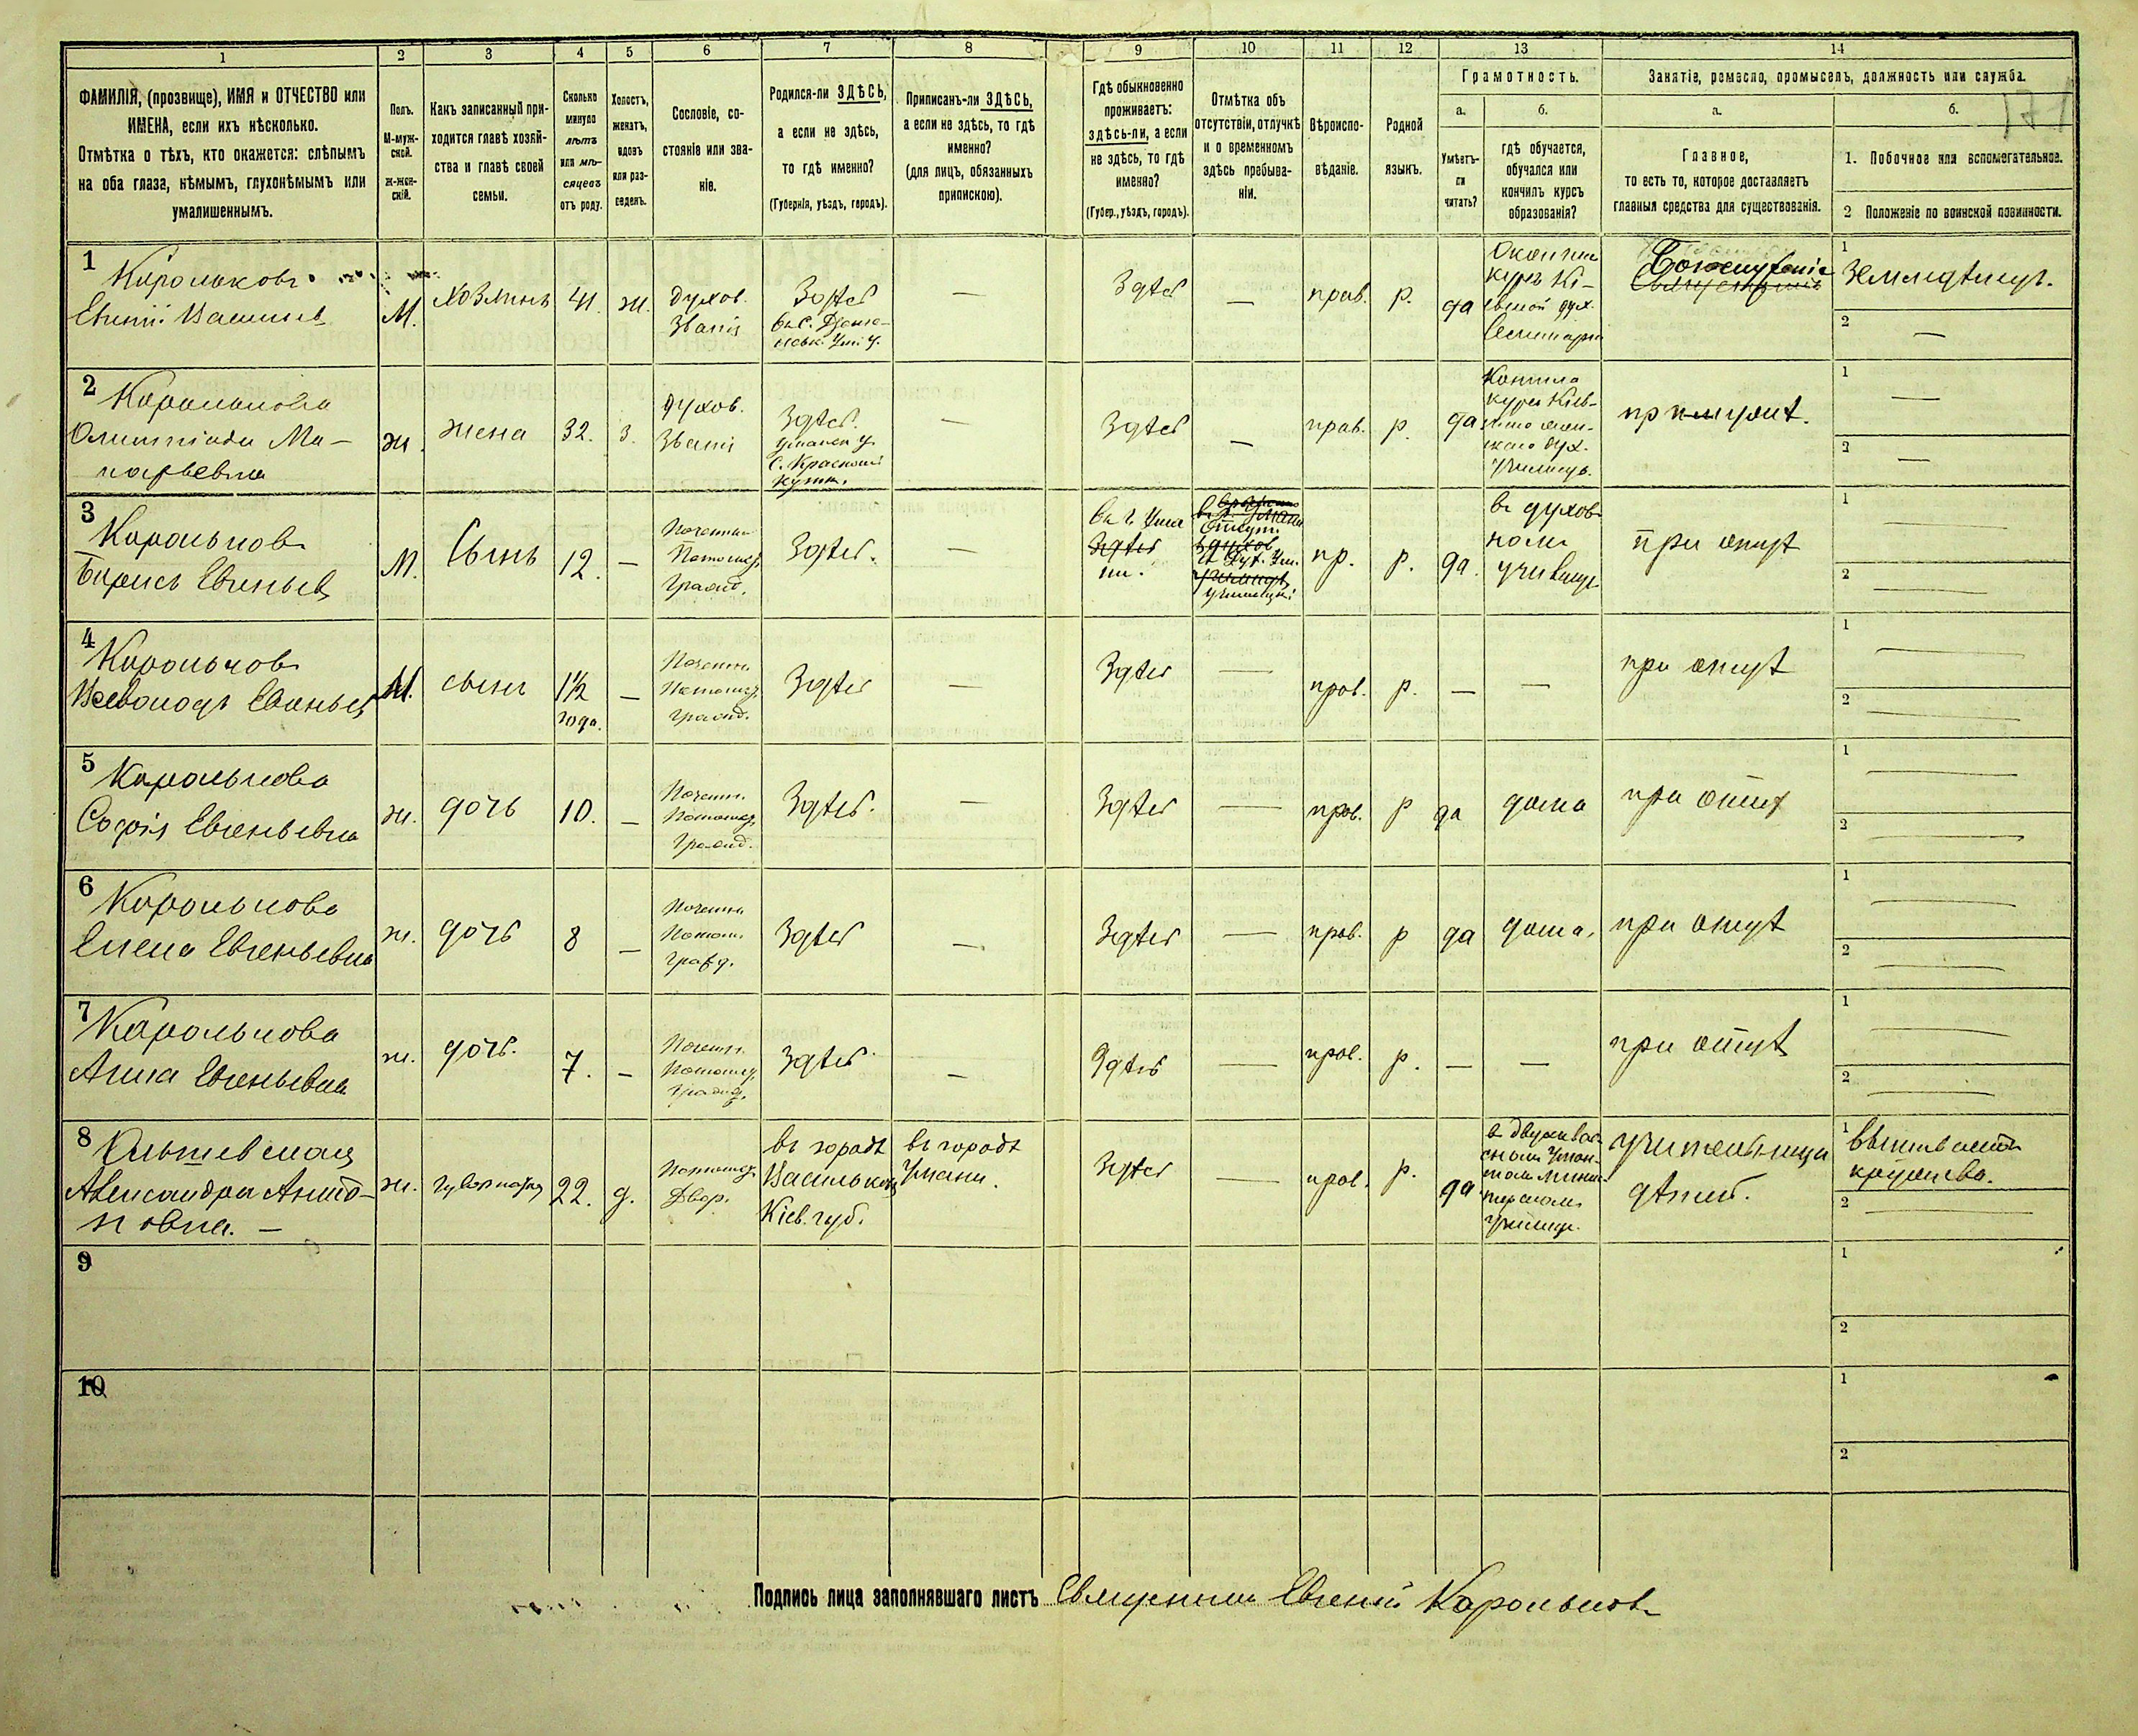 1 2 3 4 5 6 7 8 9 10 11 12 13 14
ФАМИЛІЯ, (прозвище), ИМЯ и ОТЧЕСТВО или
ИМЕНА, если ихъ нѣсколько.
Отмѣтка о тѣхъ, кто окажется: слѣпымъ
на оба глаза, нѣмымъ, глухонѣмымъ или
умалишеннымъ.
Полъ.
М-муж-
ской.
Ж-жен-
скій.
Какъ записанный при-
ходится главѣ хозяй-
ства и главѣ своей
семьи.
Сколько
минуло
лѣтъ
или мѣ-
сяцевъ
отъ роду.
Холостъ,
женатъ,
вдовъ
или раз-
веденъ.
Сословіе, со-
стояніе или зва-
ніе.
Родился-ли ЗДѢСЬ,
а если не здѣсь,
то гдѣ именно?
(Губернія, уѣздъ, городъ).
Приписанъ-ли ЗДѢСЬ,
а если не здѣсь, то гдѣ
именно?
(для лицъ, обязанныхъ
припискою).
Гдѣ обыкновенно
проживаетъ:
здѣсь-ли, а если
не здѣсь, то гдѣ
именно?
(Губер., уѣздъ, городъ).
Отмѣтка объ
отсутствіи, отлучкѣ
и о временномъ
здѣсь пребыва-
ніи.
Вѣроиспо-
вѣданіе.
Родной
языкъ.
Грамотность.
а.
Умѣетъ-
ли
читать?
б.
гдѣ обучается,
обучался или
кончилъ курсъ
образованія?
Занятіе, ремесло, промыселъ, должность или служба.
а.
Главное,
то есть то, которое доставляетъ
главныя средства для существованія.
б.
1. Побочное или вспомогательное.
2 Положеніе по воинской повинности.
1
Корольковъ
Евгеній Васильев
М.
хозяинъ
41
ж.
духов.
званія
Здѣсь
—
Здѣсь
—
прав.
р.
да
Окончил
курсъ Кі-
евской дух.
Семинаріи
Богослуженіе
1 Земледѣліе.
2 —
2
Королькова
Олимпіада Ма-
карьевна
ж.
жена
32.
з.
духов.
званія
Здѣсь.
Уманск у.
с. Красный
кутъ.
—
Здѣсь
—
прав.
р.
да
училищ.
при мужѣ.
1 —
2 —
3
Корольков
Борисъ Евгеньев
М.
Сынъ
12.
—
Почетный
Потомст.
гражд.
Здѣсь.
—
пр.
р.
да.
въ духов
номъ
училищѣ
при отцѣ
1 —
2 —
4
Корольков
Всеволодъ Евгеньев
М.
сынъ
1½
года.
—
Почетн.
Потомст.
гражд.
Здѣсь
—
Здѣсь
—
прав.
р.
—
—
при отцѣ
1 —
2 —
5
Королькова
Софія Евгеньевна
ж.
дочь
10.
—
Почетн.
Потомст.
гражд.
Здѣсь.
—
Здѣсь
—
прав.
р
да
дома
при отцѣ
1 —
2 —
6
Королькова
Елена Евгеньевна
ж.
дочь
8
—
Почетн
Потом.
гражд.
Здѣсь
—
Здѣсь
—
прав.
р
да
дома.
при отцѣ
1 —
2 —
7
Королькова
Анна Евгеньевна
ж.
дочь.
7.
—
Почетн.
Потомст.
гражд.
Здѣсь
—
Здѣсь
—
прав.
р.
—
—
при отцѣ
1 —
2 —
8
Александра Анто-
новна. —
ж.
22.
д.
Потомст.
Двор.
въ городѣ
Васильковѣ
Кіев. губ.
въ городѣ
Умани.
Здѣсь
—
прав.
р.
да
училищ.
учительница
дѣтей.
1
кружева.
2 —
9
1
2
10
1
2
Подпись лица заполнявшаго листъ Священникъ Евгеній Корольковъ